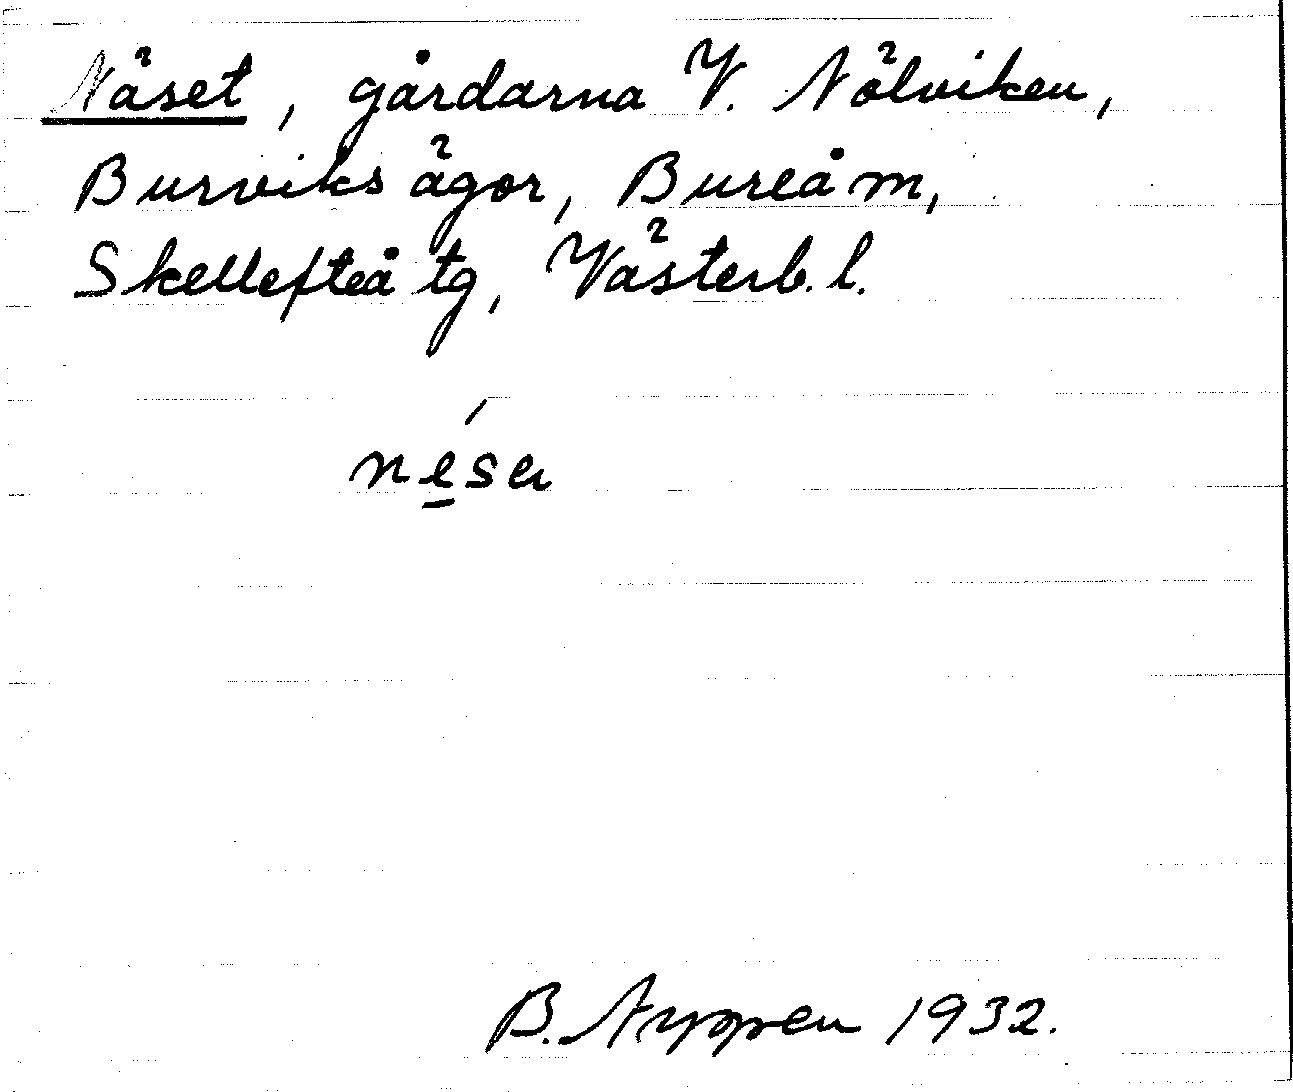 Näset, gårdarna V. Nölviken,
Burviks ägor, Bureå sn,
Skellefteå tg, Västerb. l.
B. 1932.